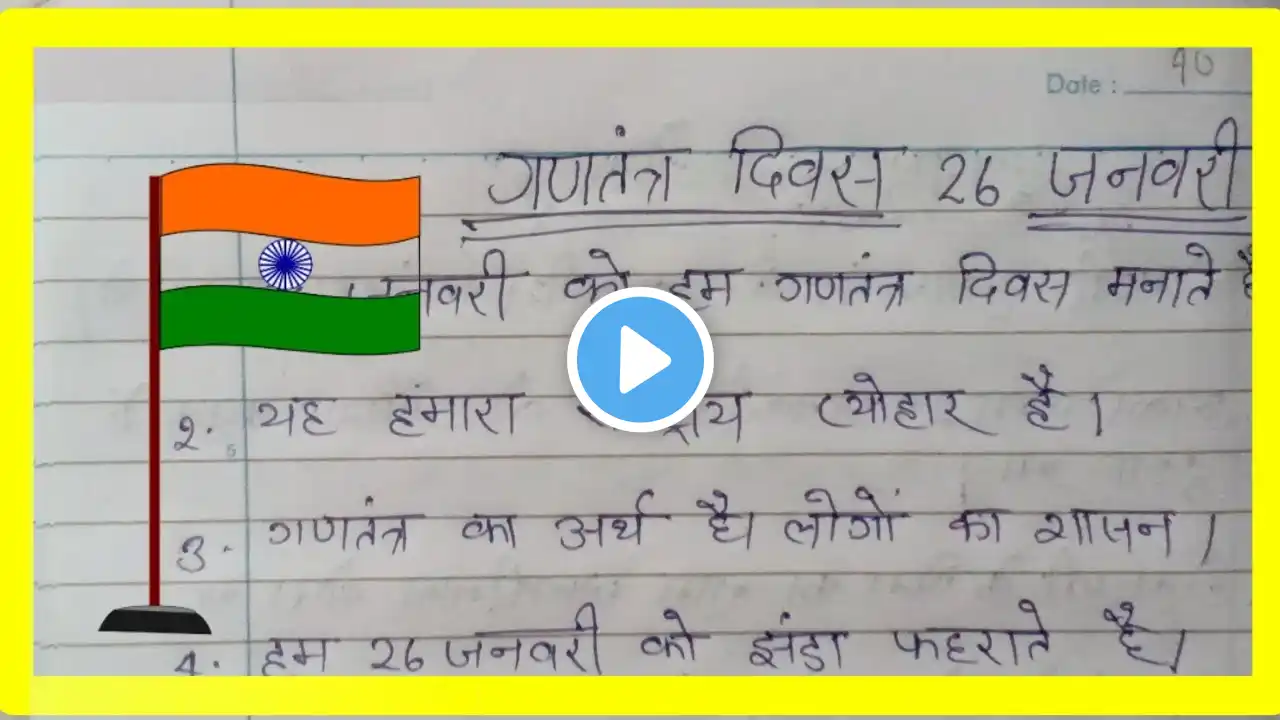 Date : 10
गणतंत्र दिवस 26 जनवरी
जनवरी को हम गणतंत्र दिवस मनाते
2. यह हमारा त्योहार है।
3. गणतंत्र का अर्थ है। लोगों का शासन।
4. हम 26 जनवरी को झंडा फहराते है।